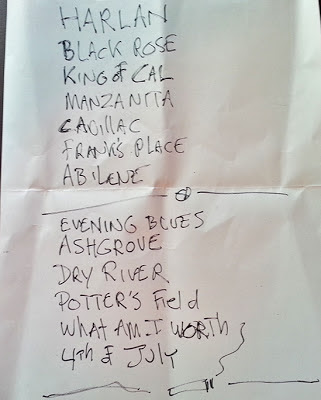 HARLAN
BLACK ROSE
KING of CAL
MANZANITA
CADILLAC
FRANK'S PLACE
ABILENE
EVENING BLUES
ASHGROVE
DRY RIVER
POTTER'S Field
WHAT AM I WORTH
4th of JULY